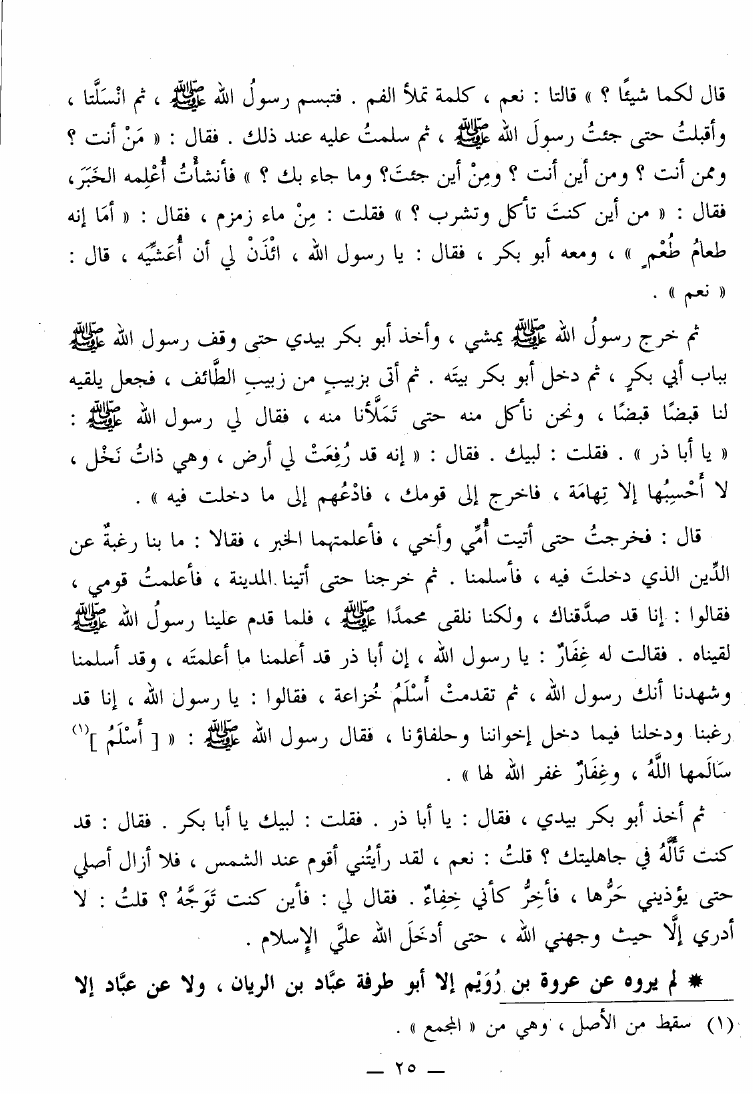 قال لكما شيئًا ؟ » قالتا : نعم ، كلمة تملأ الفم . فتبسم رسولُ الله ﷺ ، ثم انْسَلَّتا ،
وأقبلتُ حتى جئتُ رسولَ الله ﷺ ، ثم سلمتُ عليه عند ذلك . فقال : « مَنْ أنت ؟
وممن أنت ؟ ومن أين أنت ؟ ومِنْ أين جئتَ؟ وما جاء بك ؟ » فأنشأْتُ أُعْلِمه الخَبَرَ،
فقال : « من أين كنتَ تأكل وتشرب ؟ » فقلت : مِنْ ماء زمزم ، فقال : « أمَا إنه
طعامُ طُعْمٍ » ، ومعه أبو بكر ، فقال : يا رسول الله ، ائْذَنْ لي أن أُعَشِّيَه ، قال :
« نعم » .
ثم خرج رسولُ الله ﷺ يمشي ، وأخذ أبو بكر بيدي حتى وقف رسول الله ﷺ
بباب أبي بكرٍ ، ثم دخل أبو بكر بيتَه . ثم أتى بزبيبٍ من زبيبِ الطَّائف ، فجعل يلقيه
لنا قبضًا قبضًا ، ونحن نأكل منه حتى تَمَلَّأنا منه ، فقال لي رسول الله ﷺ :
« يا أبا ذر » . فقلت : لبيك . فقال : « إنه قد رُفِعَتْ لي أرض ، وهي ذاتُ نَخْل ،
لا أَحْسِبُها إلا تِهامَة ، فاخرج إلى قومك ، فادْعُهم إلى ما دخلت فيه » .
قال : فخرجتُ حتى أتيت أُمِّي وأخي ، فأعلمتهما الخبر ، فقالا : ما بنا رغبةٌ عن
الدِّين الذي دخلتَ فيه ، فأسلمنا . ثم خرجنا حتى أتينا المدينة ، فأعلمتُ قومي ،
فقالوا : إنا قد صدَّقناك ، ولكنا نلقى محمدًا ﷺ ، فلما قدم علينا رسولُ الله ﷺ
لقيناه . فقالت له غِفَارٌ : يا رسول الله ، إن أبا ذر قد أعلمنا ما أعلمتَه ، وقد أسلمنا
وشهدنا أنك رسول الله ، ثم تقدمتْ أَسْلَمُ خُزاعة ، فقالوا : يا رسول الله ، إنا قد
رغبنا ودخلنا فيما دخل إخواننا وحلفاؤنا ، فقال رسول الله ﷺ : « [ أَسْلَمُ ](١)
سَالَمها اللَّهُ ، وغِفَارٌ غفر الله لها » .
ثم أخذ أبو بكر بيدي ، فقال : يا أبا ذر . فقلت : لبيك يا أبا بكر . فقال : قد
كنت تَأَلَّهُ في جاهليتك ؟ قلتُ : نعم ، لقد رأيتُني أقوم عند الشمس ، فلا أزال أصلي
حتى يؤذيني حَرُّها ، فأخِرُّ كأني خِفاءٌ . فقال لي : فأين كنت تَوَجَّهُ ؟ قلتُ : لا
أدري إلَّا حيث وجهني الله ، حتى أدخَلَ الله عليَّ الإسلام .
* لم يروه عن عروة بن رُوَيْم إلا أبو طرفة عبَّاد بن الريان ، ولا عن عبَّاد إلا
(١) سقط من الأصل ، وهي من « المجمع » .
— ٢٥ —